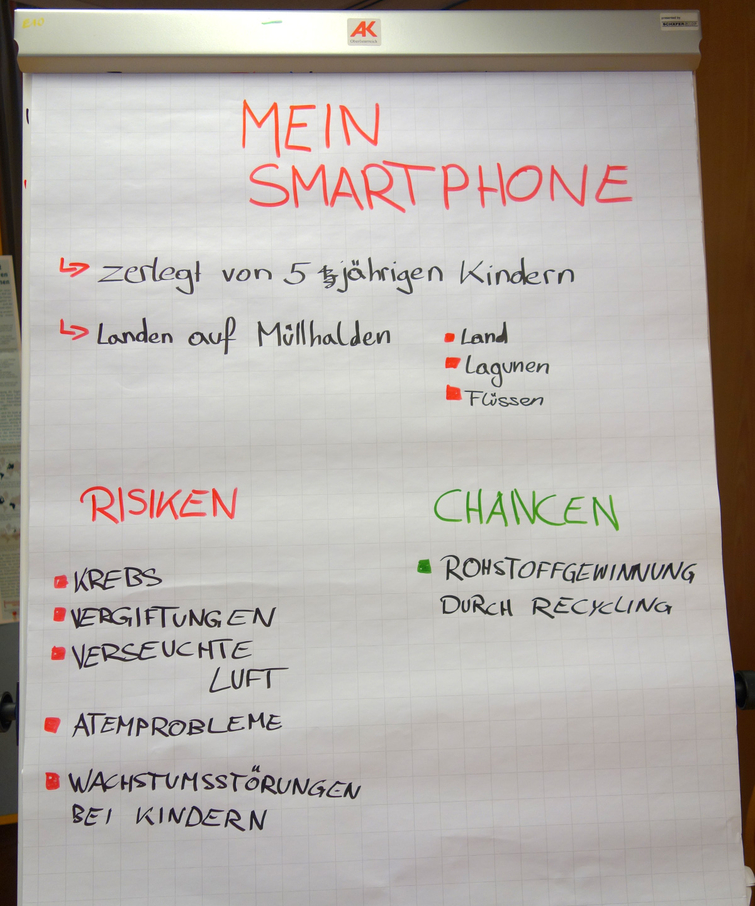 AK
MEIN
SMARTPHONE
zerlegt von 5 jährigen Kindern
Landen auf Müllhalden
Land
Lagunen
Flüssen
RISIKEN
KREBS
VERGIFTUNGEN
VERSEUCHTE
LUFT
ATEMPROBLEME
WACHSTUMSSTÖRUNGEN
BEI KINDERN
CHANCEN
ROHSTOFFGEWINNUNG
DURCH RECYCLING